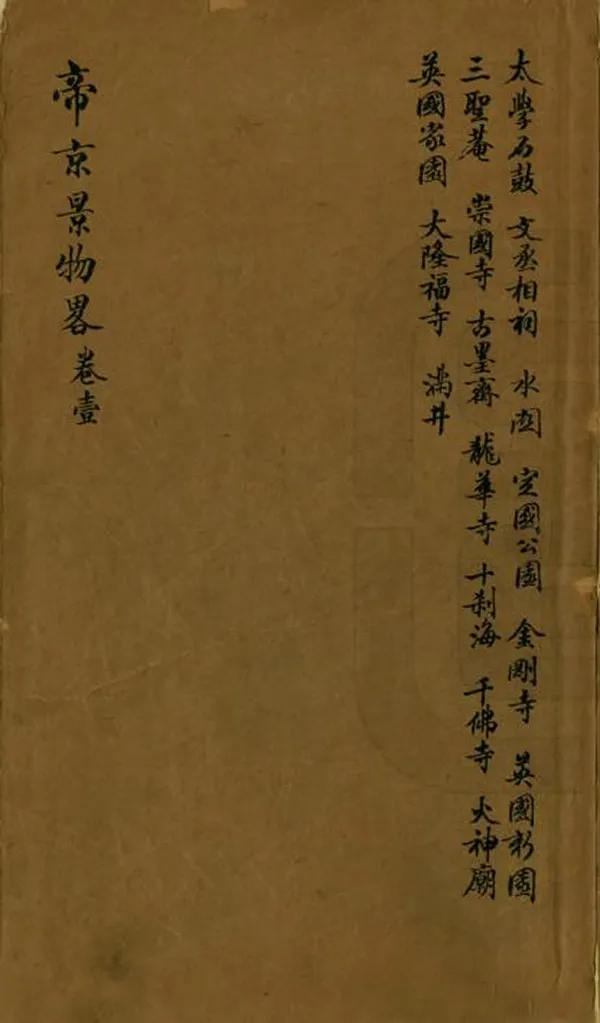 太學石鼓 文丞相祠 水関 定國公園 金剛寺 英國新園
三聖菴 崇國寺 古墨齋 龍華寺 十刹海 千佛寺 火神廟
英國家園 大隆福寺 滿井
帝京景物畧卷壹